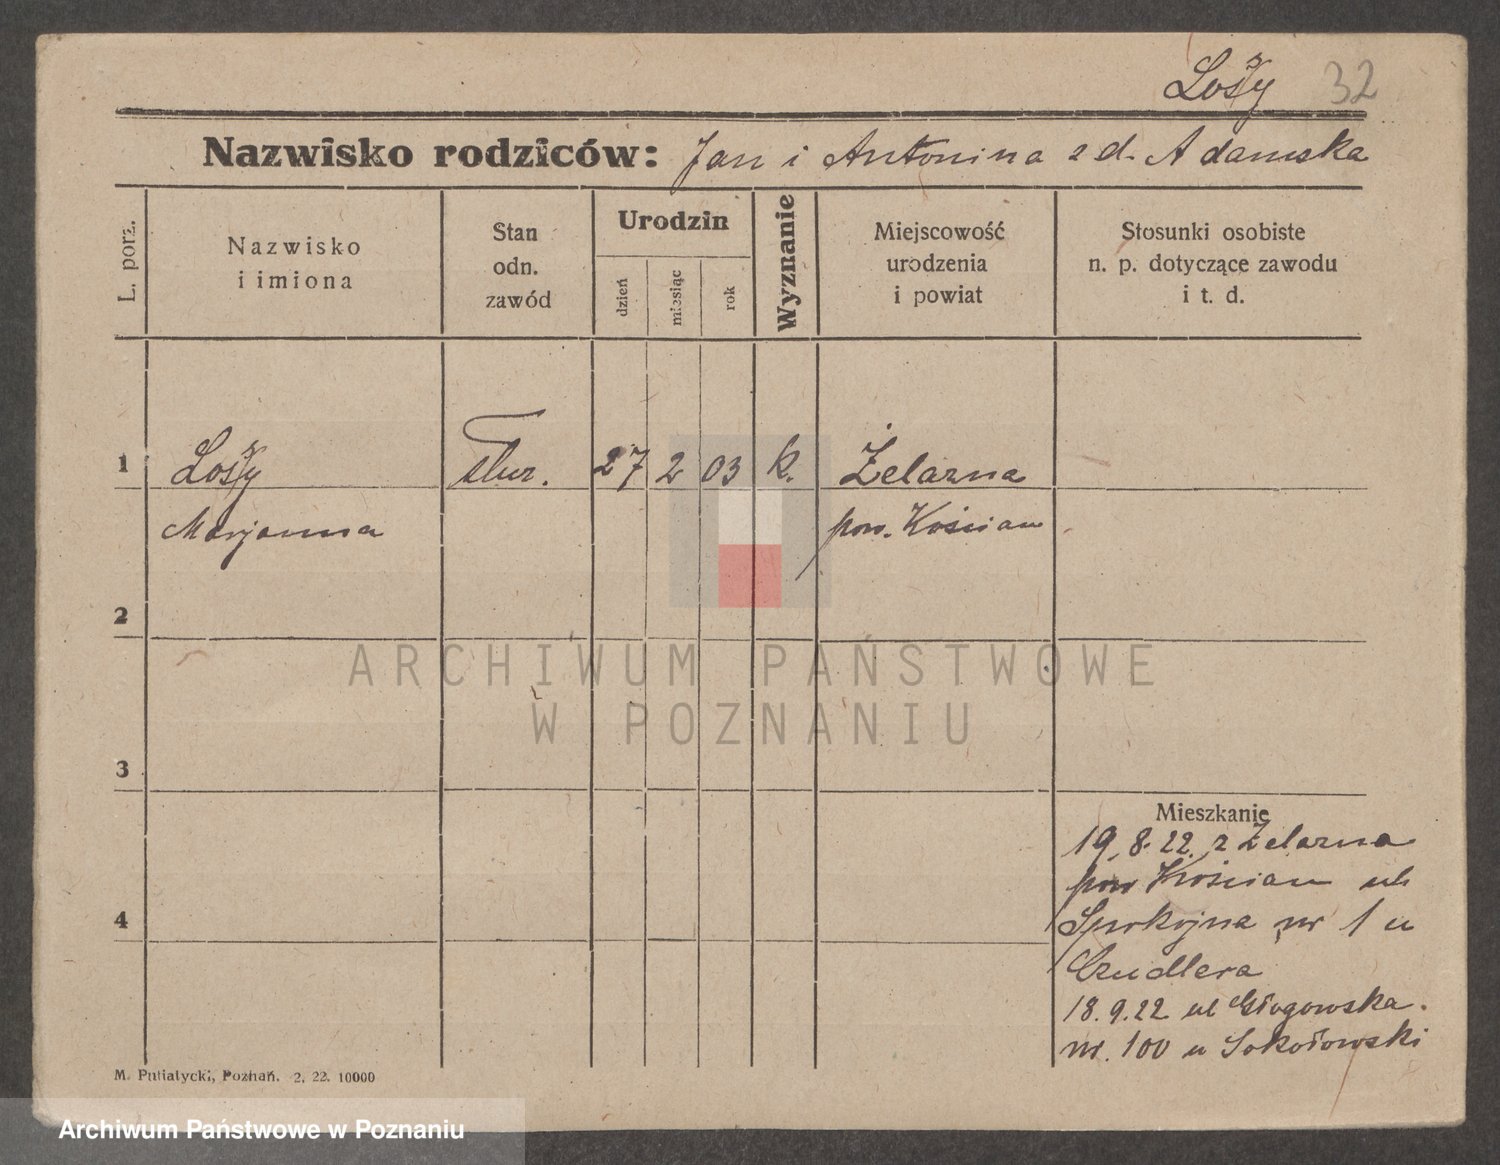 Lossy 32
Nazwisko rodziców: Jan i Antonina z d. Adamska
L. porz.
Nazwisko
i imiona
Stan
odn.
zawód
Urodzin
dzień
miesiąc
rok
Wyznanie
Miejscowość
urodzenia
i powiat
Stosunki osobiste
n. p. dotyczące zawodu
i t. d.
1 Lossy służ. 27 2 03 k. Żelazna
Marjanna pow. Kościan
2
3
4
Mieszkanie
19. 8. 22. z Żelazna
pow Kościan ul.
Spokojna nr 1 u
18. 9. 22 ul Głogowska.
nr. 100 u Sokołowski
M. Putiatycki, Poznań. 2. 22. 10000
ARCHIWUM PAŃSTWOWE
W POZNANIU
Archiwum Państwowe w Poznaniu